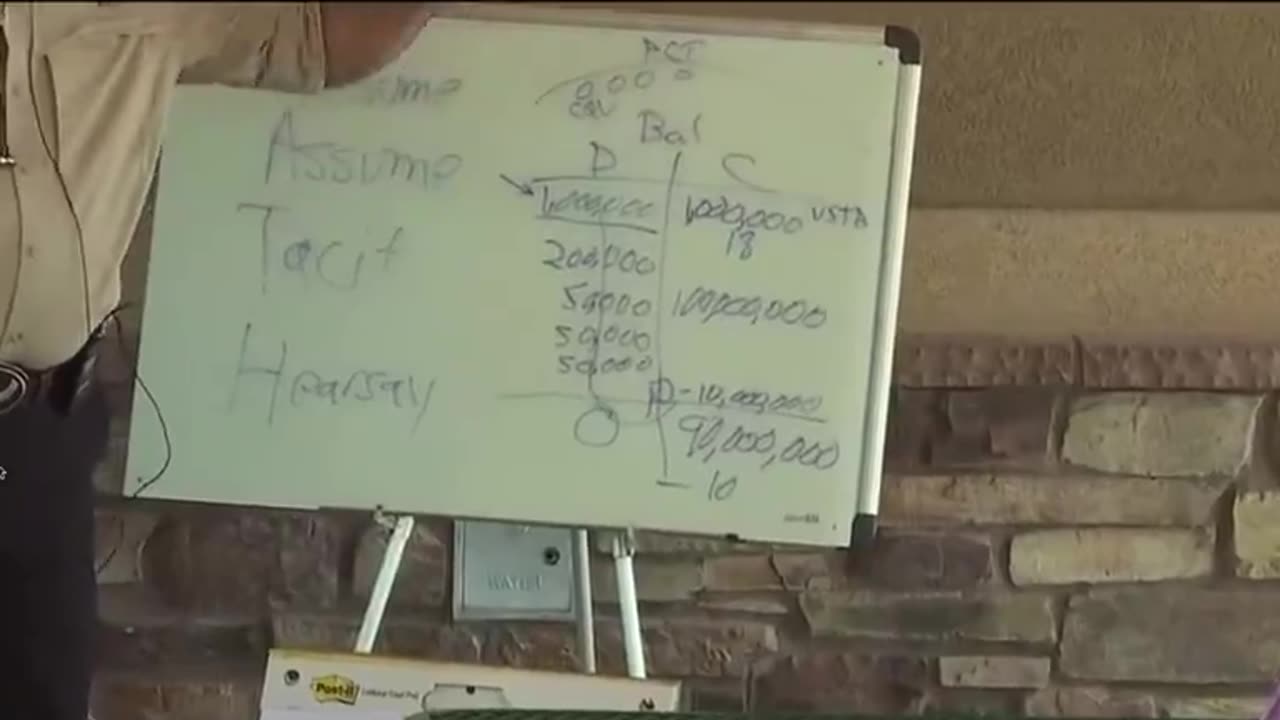 ume
Assume
Tacit
Hearsay
Bal
D C
1,000,000 1,000,000
18
200,000
50,000 100,000,000
50,000
50,000
-10,000,000
0 90,000,000
- 10
WATER
Post-it